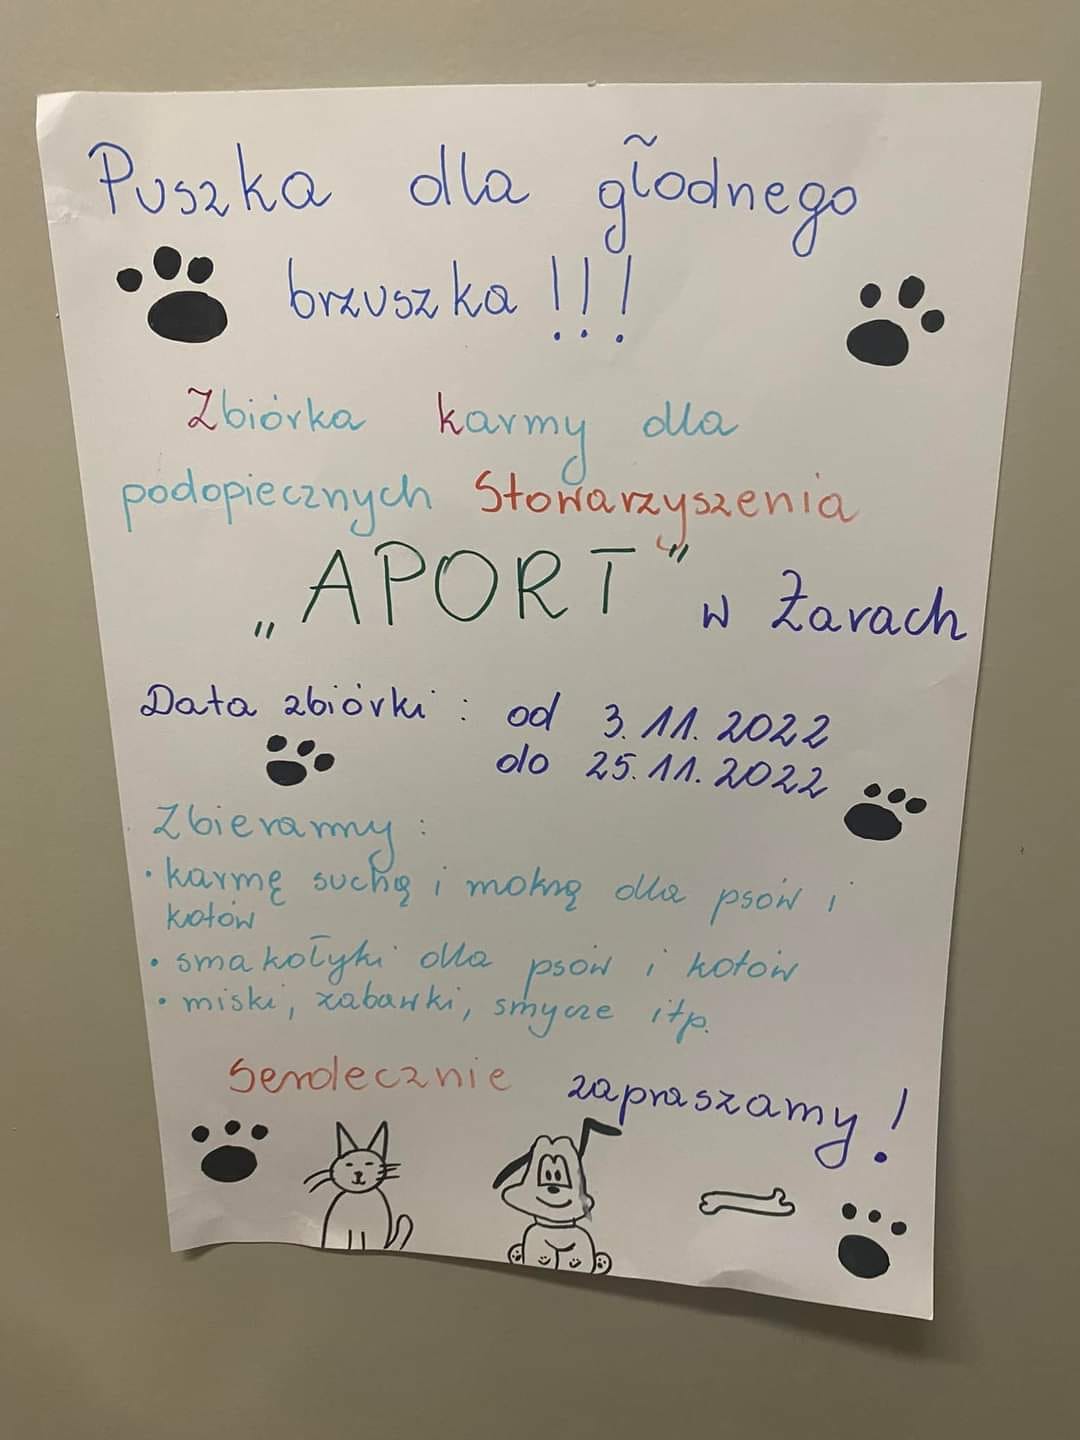 Puszka dla głodnego
brzuszka !!!
Zbiórka karmy dla
podopiecznych Stowarzyszenia
„APORT” w Żarach
Data zbiórki : od 3.11.2022
do 25.11.2022
Zbieramy :
• karmę suchą i mokrą dla psów i
kotów
• smakołyki dla psów i kotów
• miski, zabawki, smycze itp.
Serdecznie zapraszamy!